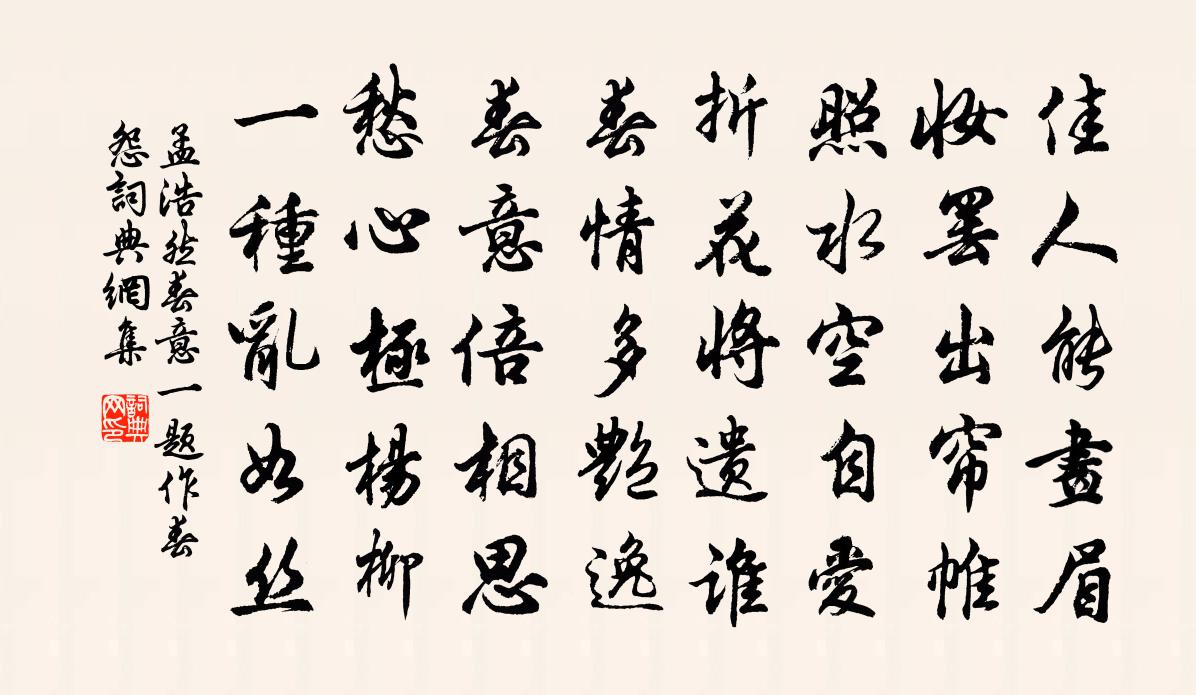 佳人能畫眉
妝罢出帘帷
照水空自愛
折花將遗誰
春情多艷逸
春意倍相思
愁心極楊柳
一種亂如丝
孟浩然春意一题作春
怨詞典網集
詞典
网印